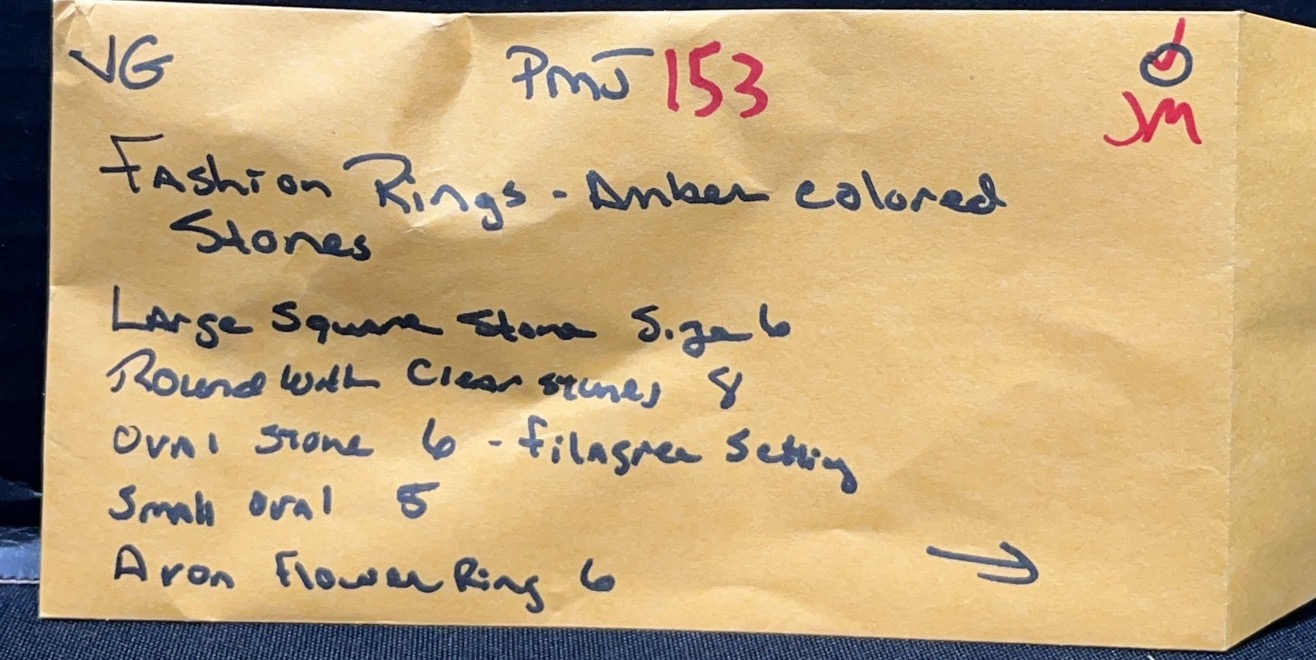 VG PMJ 153
JM
Fashion Rings - Amber colored
Stones
Large Square Stone Size 6
Round with Clear stones 8
Oval Stone 6 - filagree Setting
Small oval 5
Avon Flower Ring 6